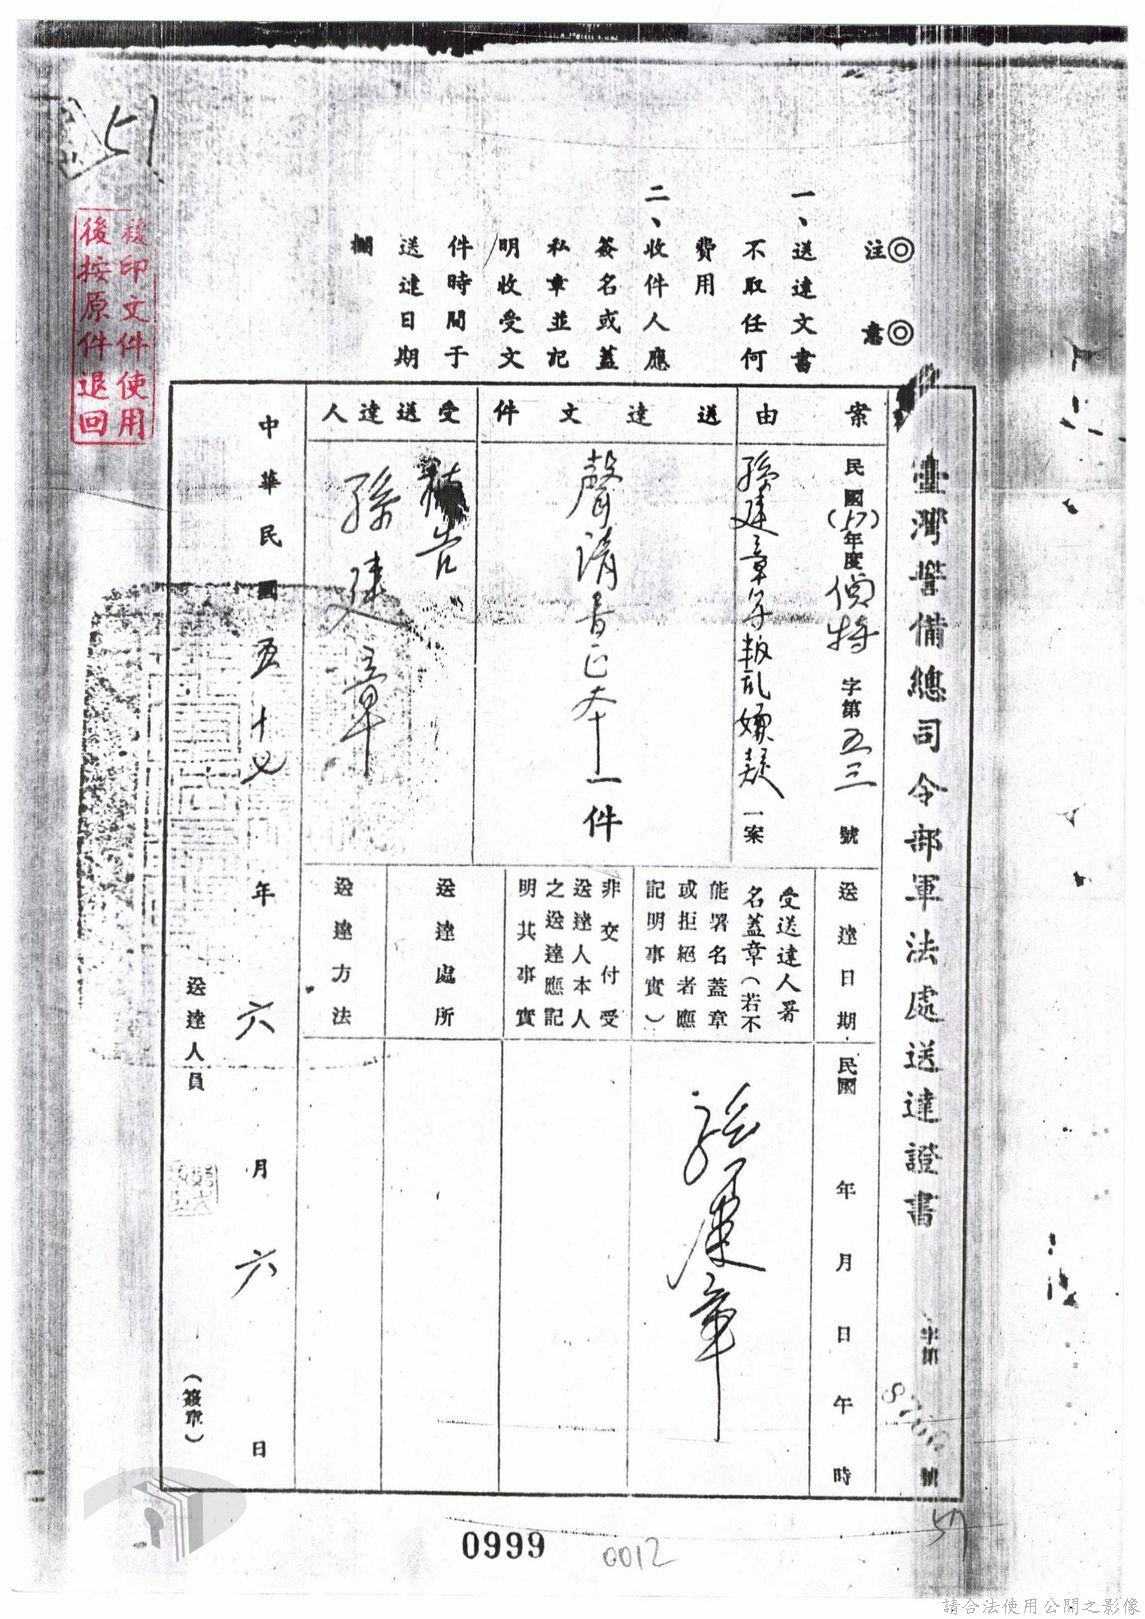 臺灣警備總司令部軍法處送達證書
字第 號
◎注意◎
一、送達文書
不取任何
費用
二、收件人應
簽名或蓋
私章並記
明收受文
件時間于
送達日期
欄
案由
民國(57)年度偵特字第五三號
孫建章等叛亂嫌疑一案
送達文件
聲請書正本一件
受送達人
被告
孫建章
送達日期
民國 年 月 日 午 時
受送達人署
名蓋章(若不
能署名蓋章
或拒絕者應
記明事實)
孫建章
非交付受
送達人本人
之送達應記
明其事實
送達處所
送達方法
中華民國五十七年六月六日
送達人員
(簽章)
複印文件使用
後按原件退回
51
57
0999
0012
請合法使用公開之影像